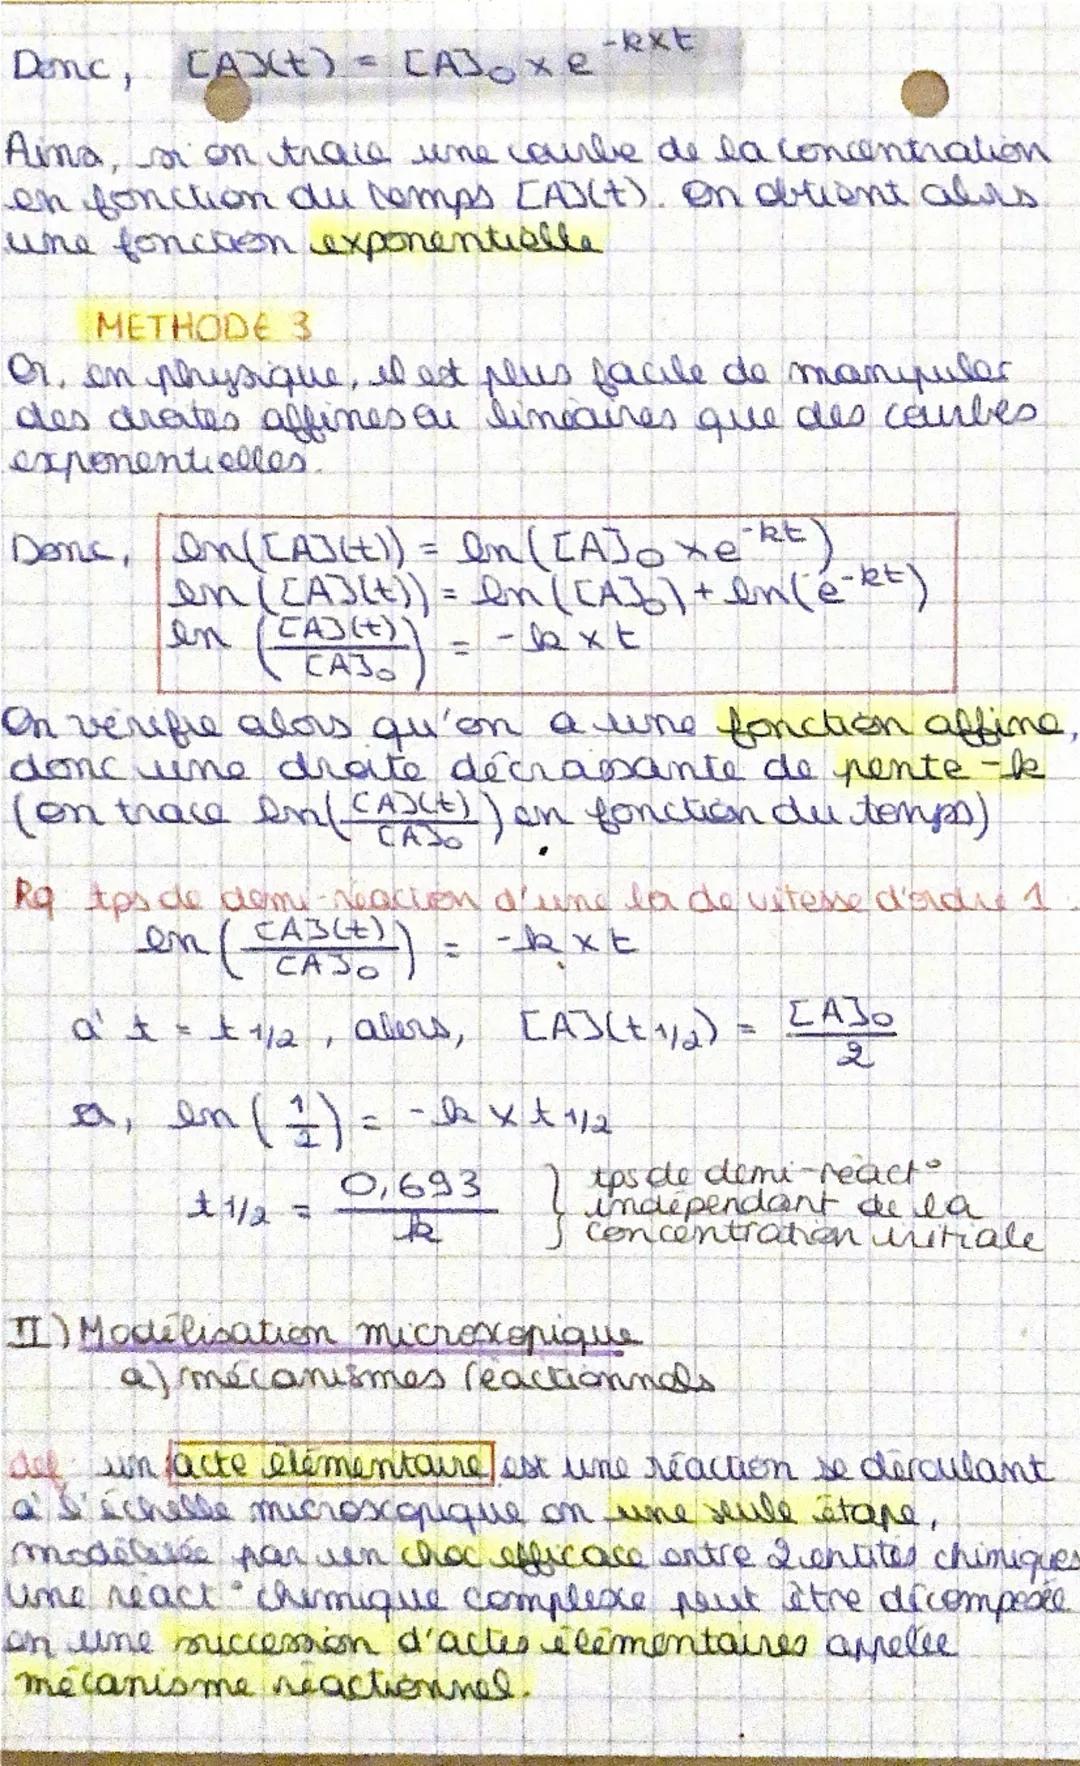 Donc, [A](t) = [A]₀ × e^(-k×t)
Ainsi, si on trace une courbe de la concentration
en fonction du temps [A](t). On obtient alors
une fonction exponentielle
METHODE 3
Or, en physique, il est plus facile de manipuler
des droites affines ou linéaires que des courbes
exponentielles.
Donc, ln([A](t)) = ln([A]₀ × e^(-kt))
ln([A](t)) = ln([A]₀) + ln(e^(-kt))
ln([A](t)/[A]₀) = -k × t
On vérifie alors qu'on a une fonction affine,
donc une droite décroissante de pente -k
(on trace ln([A](t)/[A]₀) en fonction du temps)
Rq tps de demi-réaction d'une loi de vitesse d'ordre 1.
ln([A](t)/[A]₀) = -k × t
à t = t 1/2, alors, [A](t 1/2) = [A]₀/2
ln(1/2) = -k × t 1/2
t 1/2 = 0,693/k } tps de demi-réact°
indépendant de la
concentration initiale
II) Modélisation microscopique
a) mécanismes réactionnels
def un acte élémentaire est une réaction se déroulant
à l'échelle microscopique en une seule étape,
modélisée par un choc efficace entre 2 entités chimiques
une réact° chimique complexe peut être décomposée
en une succession d'actes élémentaires appelée
mécanisme réactionnel.